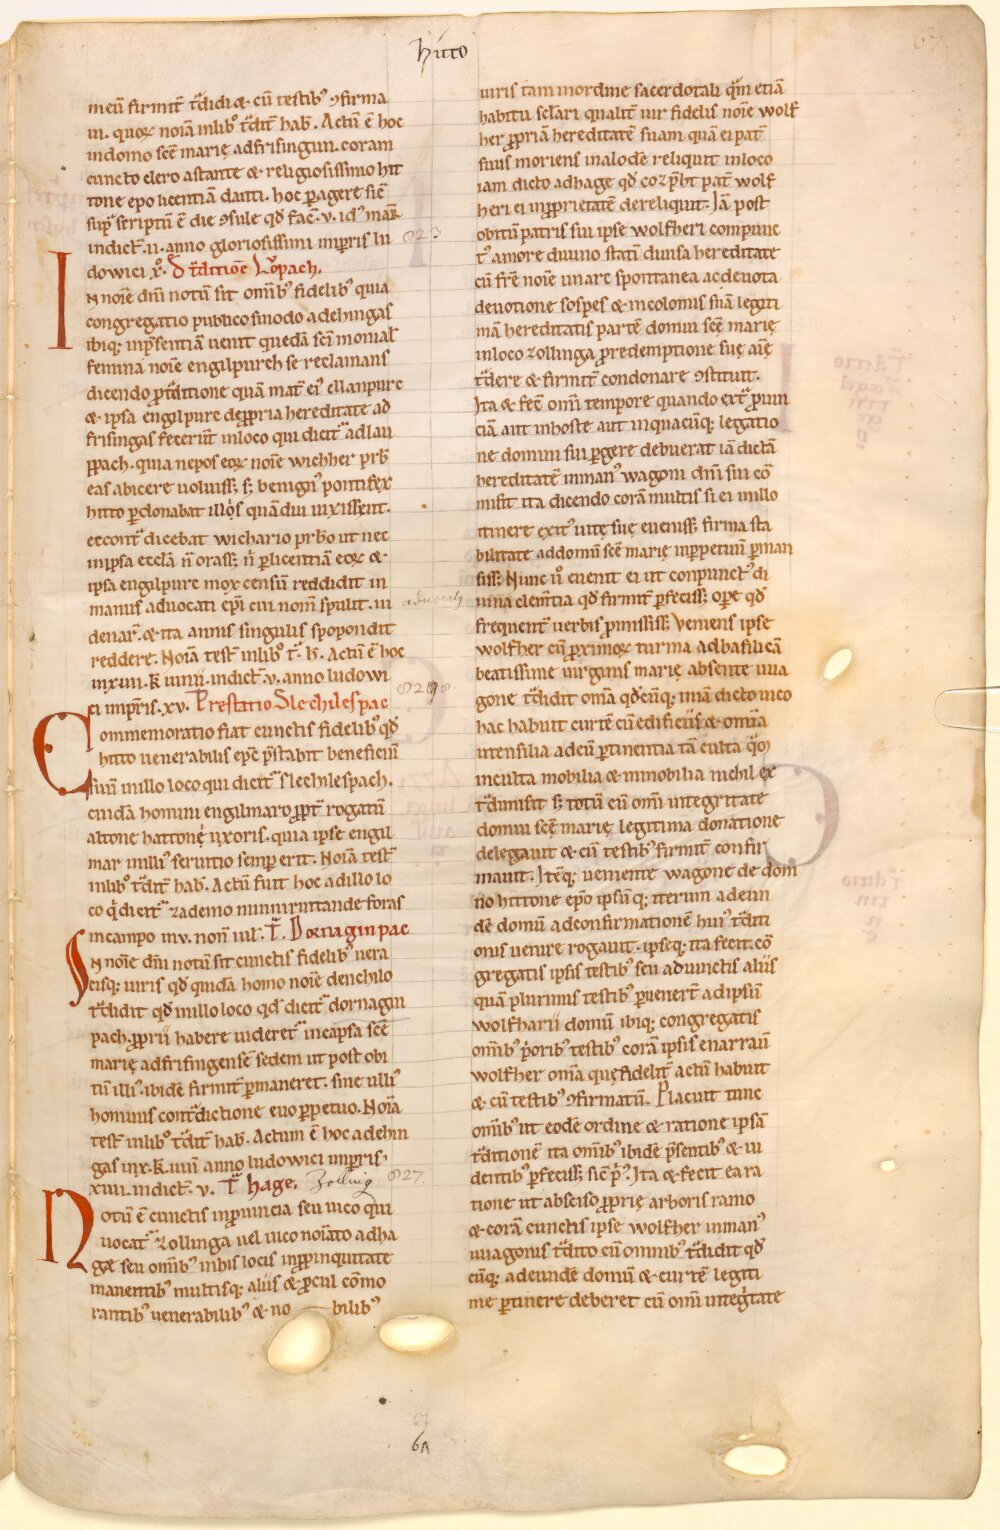 hitto
meū firmit̄ t̄didi & cū testib᷒ ꝯfirma
ui. quoꝝ noīa inlib᷒ t̄dit̄ hab̄. Actū ē hoc
indomo scē marię adfrisingun. coram
cuncto clero astante & religiosissimo hit
tone ep̄o licentiā danti. hoc ꝑagere sić
sup̄ scriptū ē die ꝯsule qd̄ fac̄. v. id᷒ mar̄
indict̄. ii. anno gloriosissimi imꝑis lu 823
dowici x̊. D t̄ditioē Lo̊pach.
IN noīe dn̄i notū sit om̄ib᷒ fidelib᷒ quia
congregatio publico sinodo adehingas
ibiq; inp̄sentiā uenit quedā scī monial᷒
femina noīe engilpurch se reclamans
dicendo ꝓt̄ditione quā mat̄ ei᷒ ellanpurc
& ipsa engilpurc deꝓpria hereditate ad
frisingas fecer̄t inloco qui dicit᷒ adlau
ppach. quia nepos eoꝝ noīe wichher prb̄
eas abicere uoluiss; s; benign᷒ pontifex
hitto ꝑdonabat illǫs quādiu uixissent.
etcont̄ dicebat wichario prb̄o ut nec
inipsa ecclā n̄ orass; n̄ ꝑlicentiā eoꝝ &
ipsa engilpurc mox censū reddidit in
manus aduocati ep̄i cui nom̄ spulit. iii advocatus
denar̄. & ita annis singulis spopondit
reddere. Noīa test̄ inlib᷒ t̄. h̄. Actū ē hoc
inxiiii. K̄ iunii. indict̄. v. anno ludowi
ci imꝑis. xv. Prestatio Slechilespac 828
Commemoratio fiat cunctis fidelib᷒ qd̄
hitto uenerabilis ep̄c p̄stabit beneficiū
suū inillo loco qui dicit᷒ slechilespach.
cuidā homini engilmaro ꝓpt̄ rogatū
altone hattonę uxoris. quia ipse engil
mar inilli᷒ seruitio semꝑ erit. Noīa test̄
inlib᷒ t̄dit̄ hab̄. Actū fuit hoc adillo lo
co q̄ dicit᷒ zademo niuuiruttande foras
incampo inv. non̄ iul̄. T̄. Dornaginpac
IN noīe dn̄i notū sit cunctis fidelib᷒ uera
cisq; uiris qd̄ quidā homo noīe denchilo
t̄didit qd̄ inillo loco qd̄ dicit᷒ dornagin
pach. ꝓprii habere uideret᷒ incapsa scē
marię adfrisingensē sedem ut post obi
tū illi᷒. ibidē firmit̄ ꝑmaneret. sine ulli᷒
hominis cont̄dictione euo ꝑpetuo. Noīa
test̄ inlib᷒ t̄dit̄ hab̄. Actum ē hoc adehin
gas inx. K̄. iun̄ anno ludowici imꝑis.
xiiii. indict̄. v. T̄ hage. Zolling 827.
Notū ē cunctis inꝓuincia seu uico qui
uocat᷒ zollinga uel uico noīato adha
gę seu om̄ib᷒ inhis locis inꝓpinquitate
manentib᷒ multisq; aliis & ꝓcul cōmo
rantib᷒ uenerabilib᷒ & no bilib᷒
uiris tam inordine sacerdotali q̄m etiā
habitu sclari qualit̄ uir fidelis noīe wolf
her ꝓpriā hereditatē suam quā ei pat̄
suus moriens inalode reliquit inloco
iam dicto adhage qd̄ coꝝ p̄ht pat̄ wolf
heri ei inꝓprietatē dereliquit. Iā post
obitū patris sui ipse wolfheri compunc
t᷒ amore diuino statū diuisa hereditate
cū frē noīe unare spontanea ac deuota
deuotione sospes & incolomis suā legiti
mā hereditatis partē domui scē marię
inloco zollinga ꝓredemptione suę aīę
t̄dere & firmit̄ condonare ꝯstituit.
Ita & fec̄ omī tempore quando ext̄ ꝓuin
ciā aut inhoste aut inquacūq; legatio
ne domini sui ꝑgere debuerat iā dictā
hereditatē inman᷒ wagoni dn̄i sui cō
misit ita dicendo corā multis si ei inillo
itinere exit᷒ uitę suę eueniss; firma sta
bilitate addomū scē marię inꝑpetuū ꝑman
siss; Nunc ů euenit ei ut conpunct᷒ di
uina clem̄tia qd̄ firmit̄ ꝑfeciss; oꝑe qd̄
frequent̄ uerbis ꝓmississ; Veniens ipse
wolfher cū ꝓximoꝝ turma adbasilicā
beatissime uirginis marię absente uua
gone t̄didit om̄a qd̄cūq; inīa dicto uico
hac habuit curtē cū edificiis & om̄ia
utensilia adeū ꝑtinentia tā culta q̄o
inculta mobilia & inmobilia nichil ex
t̄dimisit s; totū cū omī integritate
domui scē marię legitima donatione
delegauit & cū testib᷒ firmit̄ confir
mauit. Itēq; ueniente wagone de dom
no hittone ep̄o ipsūq; iterum adeun
dē domū adconfirmationē hui᷒ t̄diti
onis uenire rogauit. ipseq; ita fecit. cō
gregatis ipsis testib᷒ seu aduinctis aliis
quā plurimis testib᷒ ꝑuener̄t adipsiū
wolfharii domū ibiq; congregatis
om̄ib᷒ p̄orib᷒ testib᷒ corā ipsis enarrau̅
wolfher om̄a quę fidelit̄ actū habuit
& cū testib᷒ ꝯfirmatū. Placuit tunc
om̄ib᷒ ut eodē ordine & ratione ipsā
t̄ditionē ita om̄ib᷒ ibidē p̄sentib᷒ & ui
dentib᷒ ꝑfeciss; sić p̄᷒. Ita & fecit ea ra
tione ut absciso ꝓprię arboris ramo
& corā cunctis ipse wolfher inman᷒
uuagonis t̄dito cū omnib᷒ t̄didit qd̄
cūq; adeundē domū & curtē legiti
me ꝑtinere deberet cū omī inteḡtate
67